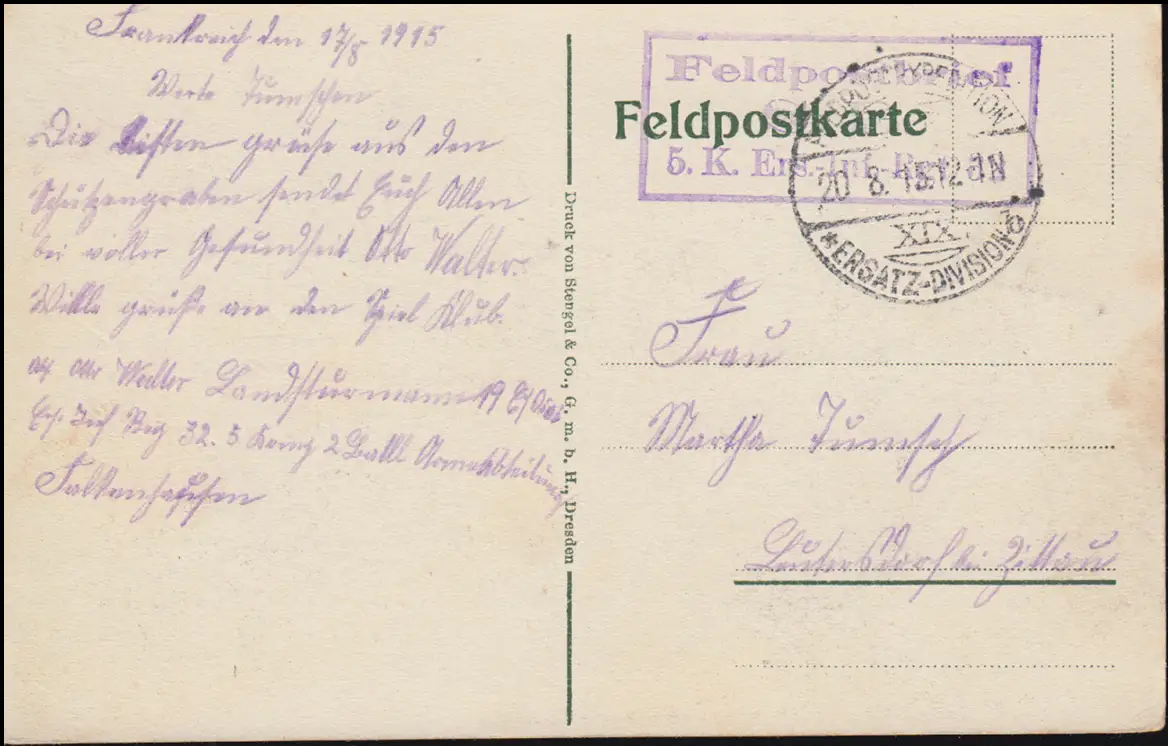 Frankreich den 17/8 1915
Werte Tumschen
Die besten grüße aus den
Schützengraben sendet Euch Allen
bei voller Gesundheit Otto Walter.
Viele grüße an den Spiel Klub.
Otto Walter Landsturmann 19
Reg 32. 5 Komp 2 Batl Armeeabteilung
Falkenhausen
Druck von Stengel & Co., G. m. b. H., Dresden
Feldpostbrief
Feldpostkarte
5. K. Ers.-Inf.-Regt.
FELDPOSTEXPEDITION
20 8. 15. 12-1N
XIX.
*ERSATZ-DIVISION
Frau
Martha Tumsch
Leutersdorf bei Zittau